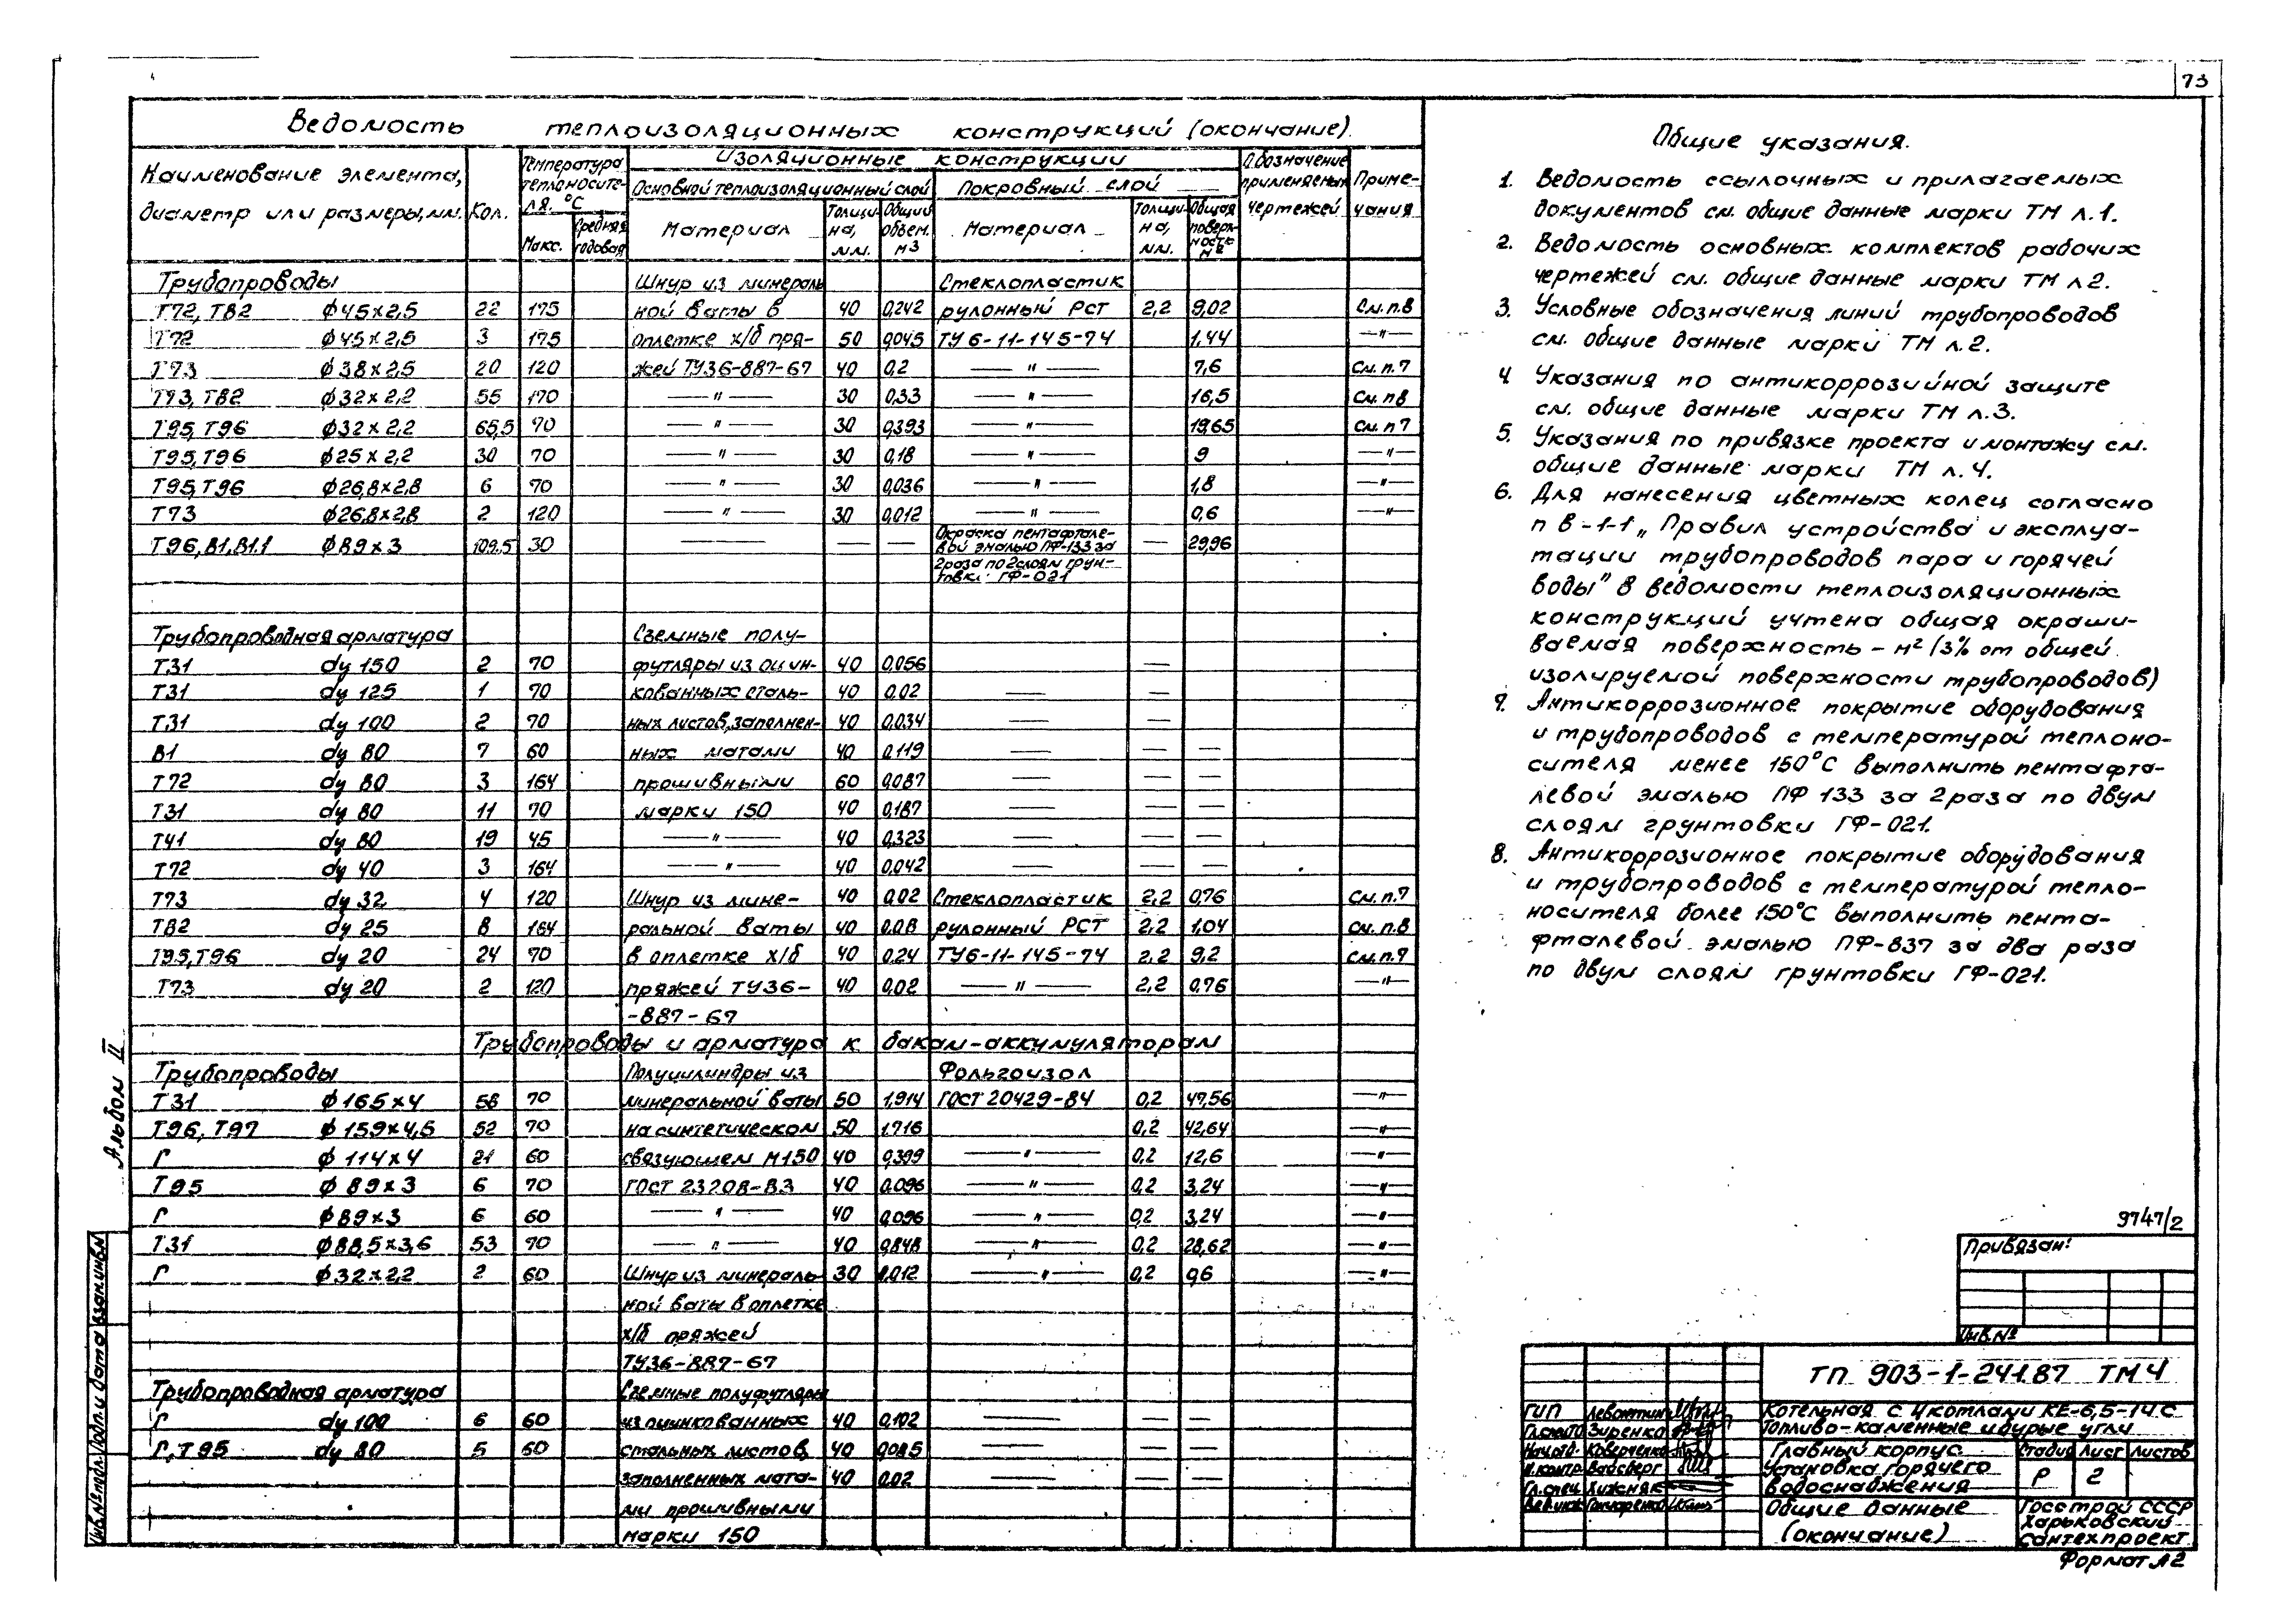 73
Ведомость теплоизоляционных конструкций (окончание).
Наименование элемента, диаметр или размеры, мм. Кол. Температура теплоносителя, °С Макс. Средняя годовая
Изоляционные конструкции
Основной теплоизоляционный слой Покровный слой
Материал Толщина, мм. Общий объем. м3 Материал Толщина, мм. Общая поверхность м2
Обозначение применяемых чертежей Примечания
Трубопроводы Шнур из минераль Стеклопластик
Т72, Т82 ф45×2,5 22 175 ной ваты в 40 0,242 рулонный РСТ 2,2 9,02 См. п.8
Т72 ф45×2,5 3 175 оплетке х/б пря- 50 0,045 ТУ6-11-145-74 1,44 —"—
Т73 ф38×2,5 20 120 жей ТУ36-887-67 40 0,2 —"— 7,6 См. п.7
Т73, Т82 ф32×2,2 55 170 —"— 30 0,33 —"— 16,5 См. п8
Т95, Т96 ф32×2,2 65,5 70 —"— 30 0,393 —"— 19,65 См. п7
Т95, Т96 ф25×2,2 30 70 —"— 30 0,18 —"— 9 —"—
Т95, Т96 ф26,8×2,8 6 70 —"— 30 0,036 —"— 1,8 —"—
Т73 ф26,8×2,8 2 120 —"— 30 0,012 —"— 0,6 —"—
Т96, В1, В1.1 ф89×3 109,5 30 — — — Окраска пентафтале-вой эмалью ПФ-133 за — 29,96
2раза по 2слоям грун-товки ГФ-021
Трубопроводная арматура Съемные полу-
Т31 dу 150 2 70 футляры из оцин- 40 0,056 —
Т31 dу 125 1 70 кованных сталь- 40 0.02 — —
Т31 dу 100 2 70 ных листов, заполнен- 40 0.034 — —
В1 dу 80 7 60 ных матами 40 0.119 — — —
Т72 dу 80 3 164 прошивными 60 0,087 — — —
Т31 dу 80 11 70 марки 150 40 0,187 — — —
Т41 dу 80 19 45 —"— 40 0,323 — — —
Т72 dу 40 3 164 —"— 40 0,042 — — —
Т73 dу 32 4 120 Шнур из мине- 40 0.02 Стеклопластик 2,2 0,76 См. п.7
Т82 dу 25 8 164 ральной ваты 40 0.08 рулонный РСТ 2,2 1,04 См. п.8
Т95, Т96 dу 20 24 70 в оплетке х/б 40 0.24 ТУ6-11-145-74 2,2 9,2 См. п.7
Т73 dу 20 2 120 пряжей ТУ36- 40 0.02 —"— 2,2 0,76 —"—
-887-67
Трубопроводы и арматура к бакам-аккумуляторам
Трубопроводы Полуцилиндры из Фольгоизол
Т31 ф165×4 58 70 минеральной ваты 50 1,914 ГОСТ 20429-84 0,2 47,56 —"—
Т96, Т97 ф159×4,5 52 70 на синтетическом 50 1.716 0,2 42,64 —"—
Г ф114×4 21 60 связующем М150 40 0,399 —"— 0,2 12,6 —"—
Т95 ф89×3 6 70 ГОСТ 23208-83 40 0.096 —"— 0,2 3,24 —"—
Г ф89×3 6 60 —"— 40 0,096 —"— 0,2 3,24 —"—
Т31 ф88,5×3,6 53 70 —"— 40 0,848 —"— 0,2 28,62 —"—
Г ф32×2,2 2 60 Шнур из минераль- 30 0.012 —"— 0,2 0,6 —"—
ной ваты в оплетке
х/б пряжей
ТУ36-887-67
Трубопроводная арматура Съемные полуфутляры
Г dу 100 6 60 из оцинкованных 40 0,102 — — —
Г, Т95 dу 80 5 60 стальных листов, 40 0,085 — — —
заполненных мата- 40 0.02 — — —
ми прошивными
марки 150
Общие указания.
1. Ведомость ссылочных и прилагаемых
документов см. общие данные марки ТМ л.1.
2. Ведомость основных комплектов рабочих
чертежей см. общие данные марки ТМ л2.
3. Условные обозначения линий трубопроводов
см. общие данные марки ТМ л.2.
4 Указания по антикоррозийной защите
см. общие данные марки ТМ л.3.
5. Указания по привязке проекта и монтажу см.
общие данные марки ТМ л.4.
6. Для нанесения цветных колец согласно
п 8-1-1 „Правил устройства и эксплуа-
тации трубопроводов пара и горячей
воды" в ведомости теплоизоляционных
конструкций учтена общая окраши-
ваемая поверхность – м² (3% от общей
изолируемой поверхности трубопроводов)
7. Антикоррозионное покрытие оборудования
и трубопроводов с температурой теплоно-
сителя менее 150°С выполнить пентафта-
левой эмалью ПФ 133 за 2 раза по двум
слоям грунтовки ГФ-021.
8. Антикоррозионное покрытие оборудования
и трубопроводов с температурой тепло-
носителя более 150°С выполнить пента-
фталевой эмалью ПФ-837 за два раза
по двум слоям грунтовки ГФ-021.
9747/2
Привязан:
Инв.№
ТП 903-1-241.87 ТМ4
ГИП Левонтин
Зиренко
Нач.отд. Коверченко
Н.контр Вайсберг
Гл.спец Хижняк
Гончаренко
Котельная с 4 котлами КЕ-6,5-14С
Топливо-каменные и бурые угли
Главный корпус
Установка горячего
водоснабжения
Стадия Лист Листов
Р 2
Общие данные
(окончание)
Госстрой СССР
Харьковский
Сантехпроект
Формат А2
Альбом II
Инв.№подл. Подп. и дата Взам.инв.№